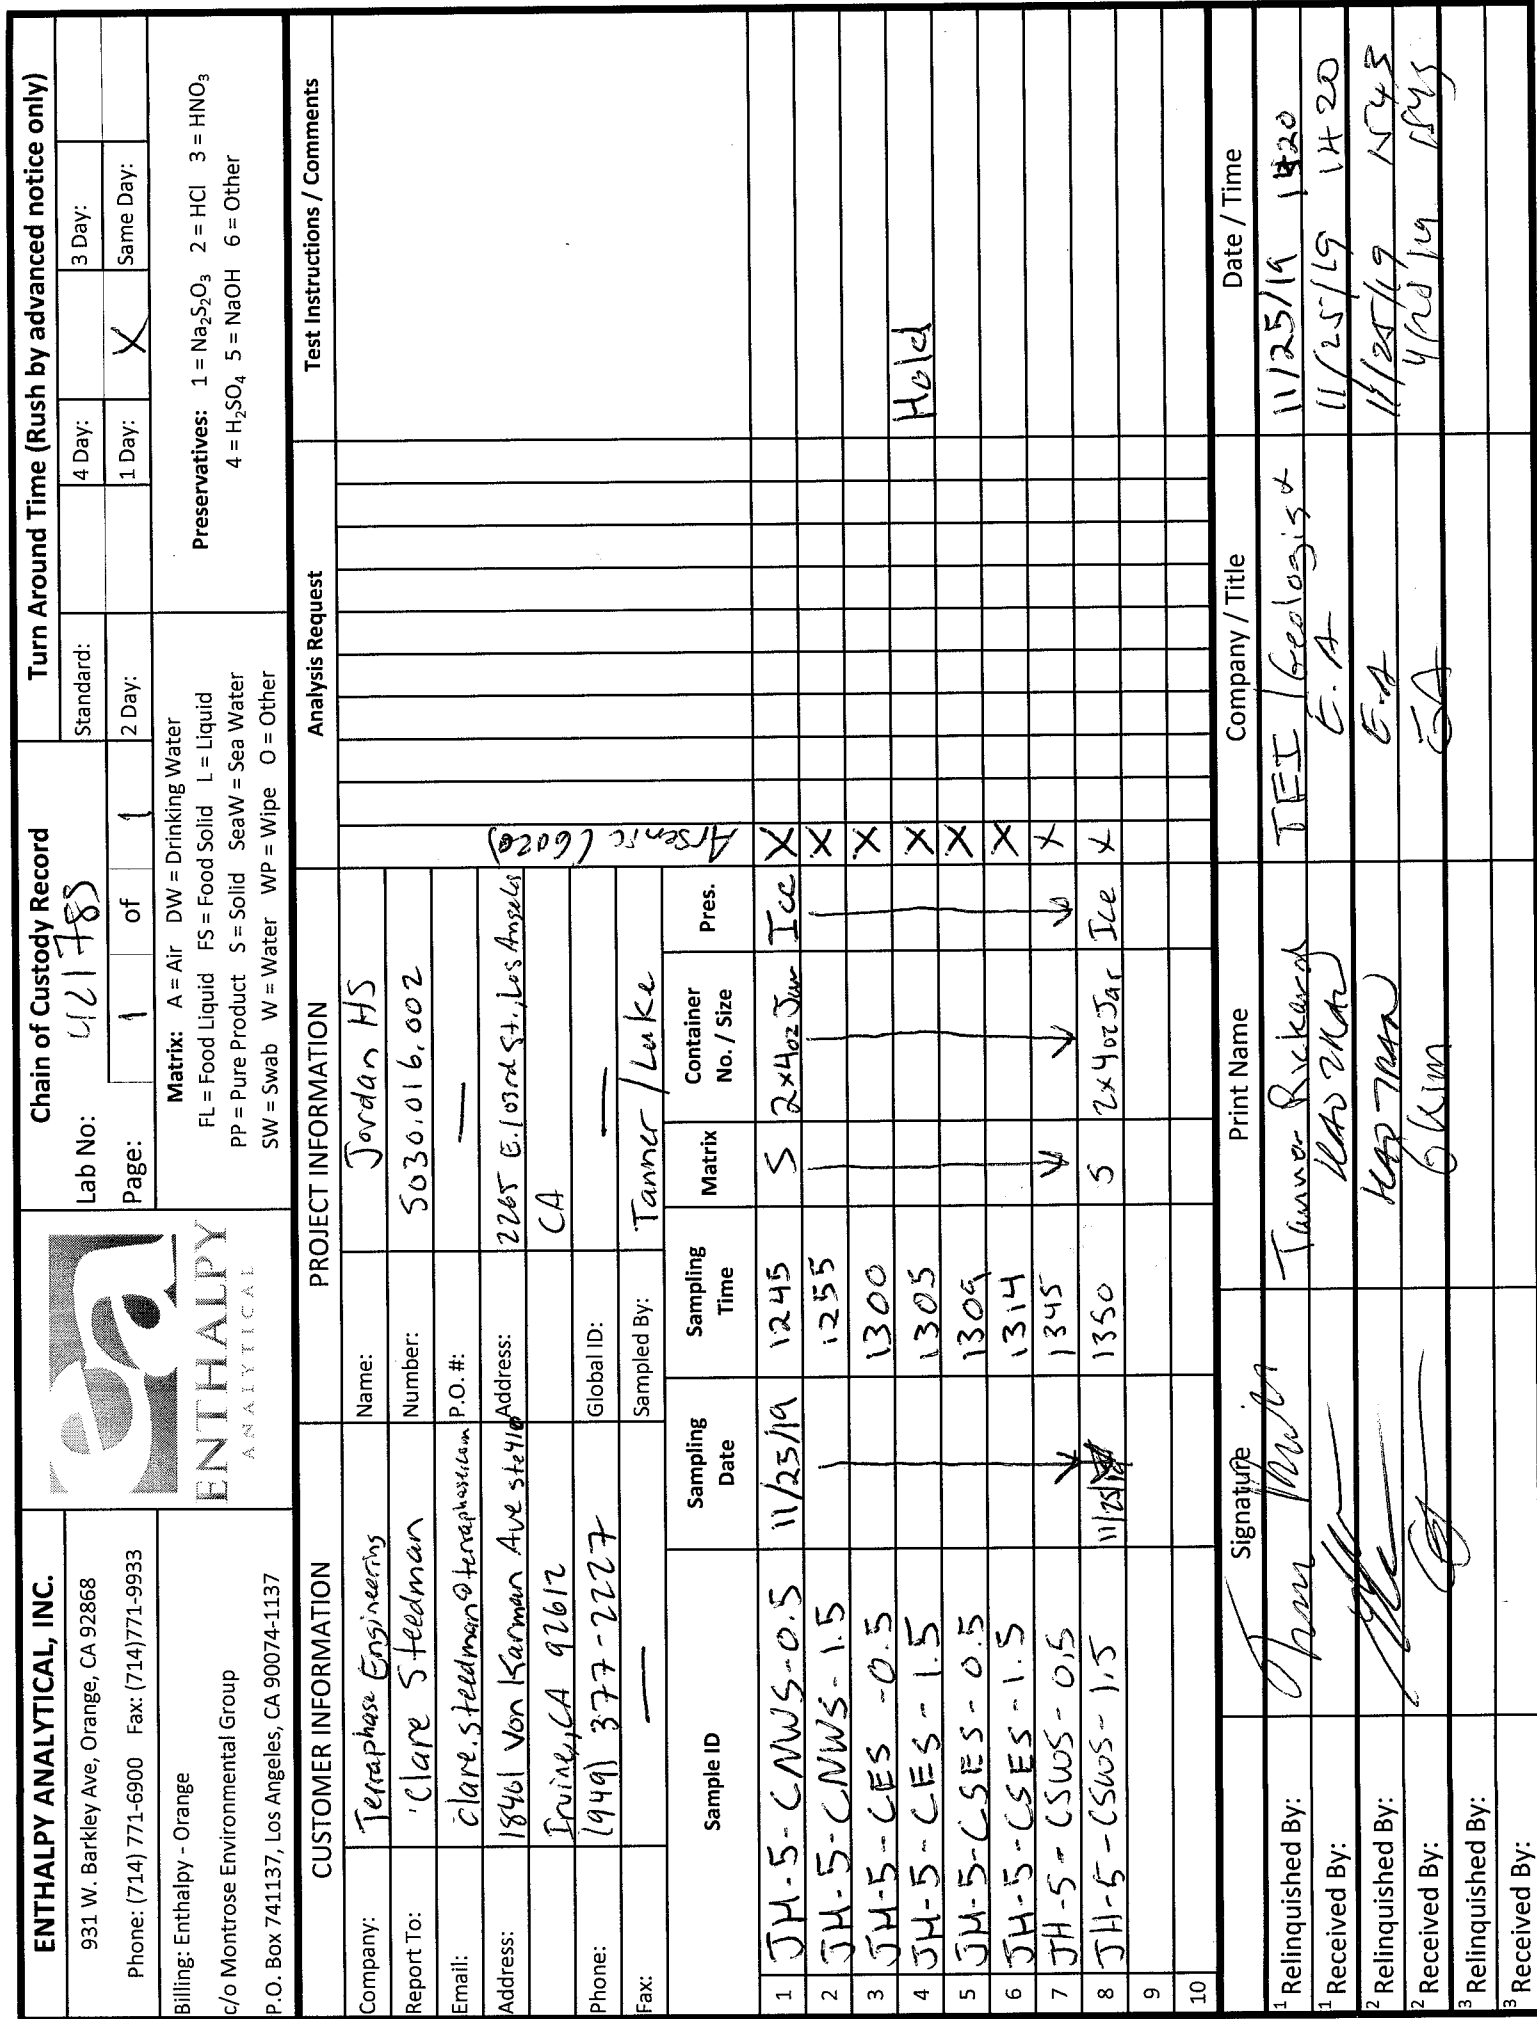 ENTHALPY ANALYTICAL, INC.
931 W. Barkley Ave, Orange, CA 92868
Phone: (714) 771-6900 Fax: (714)771-9933
Billing: Enthalpy - Orange
c/o Montrose Environmental Group
P.O. Box 741137, Los Angeles, CA 90074-1137
ea
ENTHALPY
ANALYTICAL
Chain of Custody Record
Lab No: 421783
Page: 1 of 1
Turn Around Time (Rush by advanced notice only)
Standard: 4 Day: 3 Day:
2 Day: 1 Day: X Same Day:
Matrix: A = Air DW = Drinking Water
FL = Food Liquid FS = Food Solid L = Liquid
PP = Pure Product S = Solid SeaW = Sea Water
SW = Swab W = Water WP = Wipe O = Other
Preservatives: 1 = Na2S2O3 2 = HCl 3 = HNO3
4 = H2SO4 5 = NaOH 6 = Other
CUSTOMER INFORMATION
Company: Terraphase Engineering
Report To: Clare Steedman
Email: clare.steedman@terraphase.com
Address: 18401 Von Karman Ave Ste410
Irvine, CA 92612
Phone: (949) 377-2227
Fax: —
PROJECT INFORMATION
Name: Jordan HS
Number: S030.016.002
P.O. #: —
Address: 2265 E. 103rd St., Los Angeles
CA
Global ID: —
Sampled By: Tanner / Luke
Analysis Request
Arsenic (6020)
Test Instructions / Comments
Sample ID Sampling Date Sampling Time Matrix Container No. / Size Pres.
1 JH-5-CNWS-0.5 11/25/19 1245 S 2x4oz Jar Ice X
2 JH-5-CNWS-1.5 1255 X
3 JH-5-CES-0.5 1300 X
4 JH-5-CES-1.5 1305 X Hold
5 JH-5-CSES-0.5 1309 X
6 JH-5-CSES-1.5 1314 X
7 JH-5-CSWS-0.5 1345 X
8 JH-5-CSWS-1.5 11/25/19 1350 S 2x4oz Jar Ice X
9
10
Signature Print Name Company / Title Date / Time
1 Relinquished By: Tanner Rickard TEI / Geologist 11/25/19 1420
1 Received By: E.A 11/25/19 1420
2 Relinquished By: E.A 11/25/19 1543
2 Received By: EA
3 Relinquished By:
3 Received By: